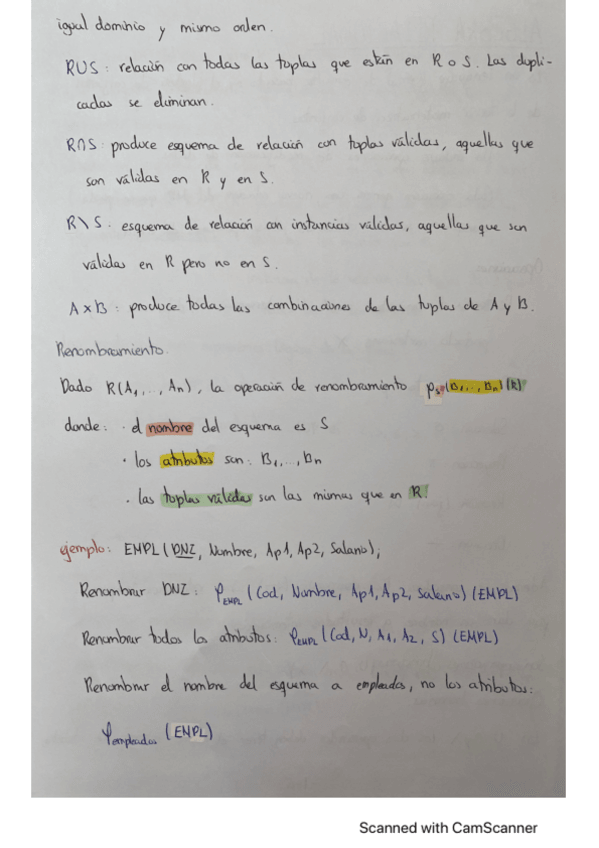 igual dominio y mismo orden.
RUS: relación con todas las tuplas que están en R o S. Las dupli-
cadas se eliminan.
R∩S: produce esquema de relación con tuplas válidas, aquellas que
son válidas en R y en S.
R\S: esquema de relación con instancias válidas, aquellas que son
válidas en R pero no en S.
A×B: produce todas las combinaciones de las tuplas de A y B.
Renombramiento.
Dado R(A1,..., An), la operación de renombramiento ρs(B1,..., Bn)(R)
donde: · el nombre del esquema es S
· los atributos son: B1,...,Bn
· las tuplas válidas son las mismas que en R.
ejemplo: EMPL(DNI, Nombre, Ap1, Ap2, Salario);
Renombrar DNI: ρEMPL(Cod, Nombre, Ap1, Ap2, Salario)(EMPL)
Renombrar todos los atributos: ρEMPL(Cod, N, A1, A2, S)(EMPL)
Renombrar el nombre del esquema a empleados, no los atributos:
ρempleados (EMPL)
Scanned with CamScanner